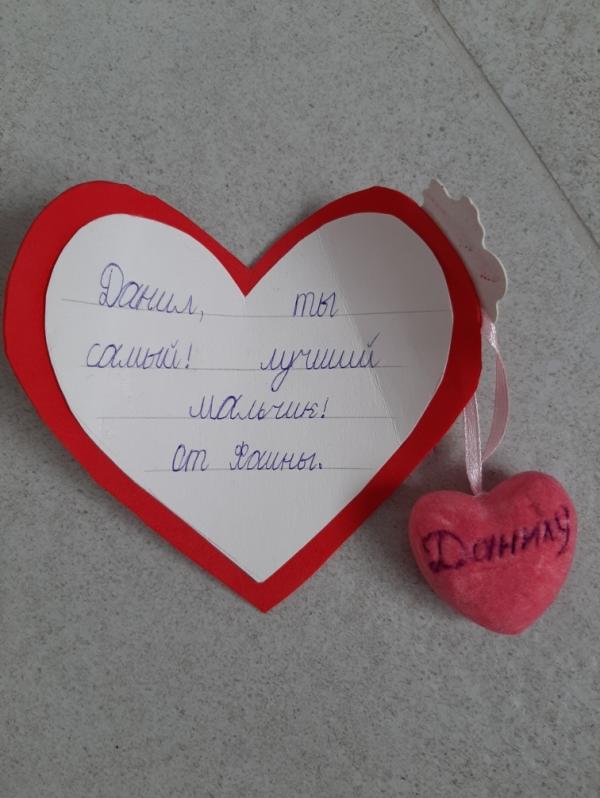 Данил, ты
самый! лучший
мальчик!
от Яаины.
Данилу